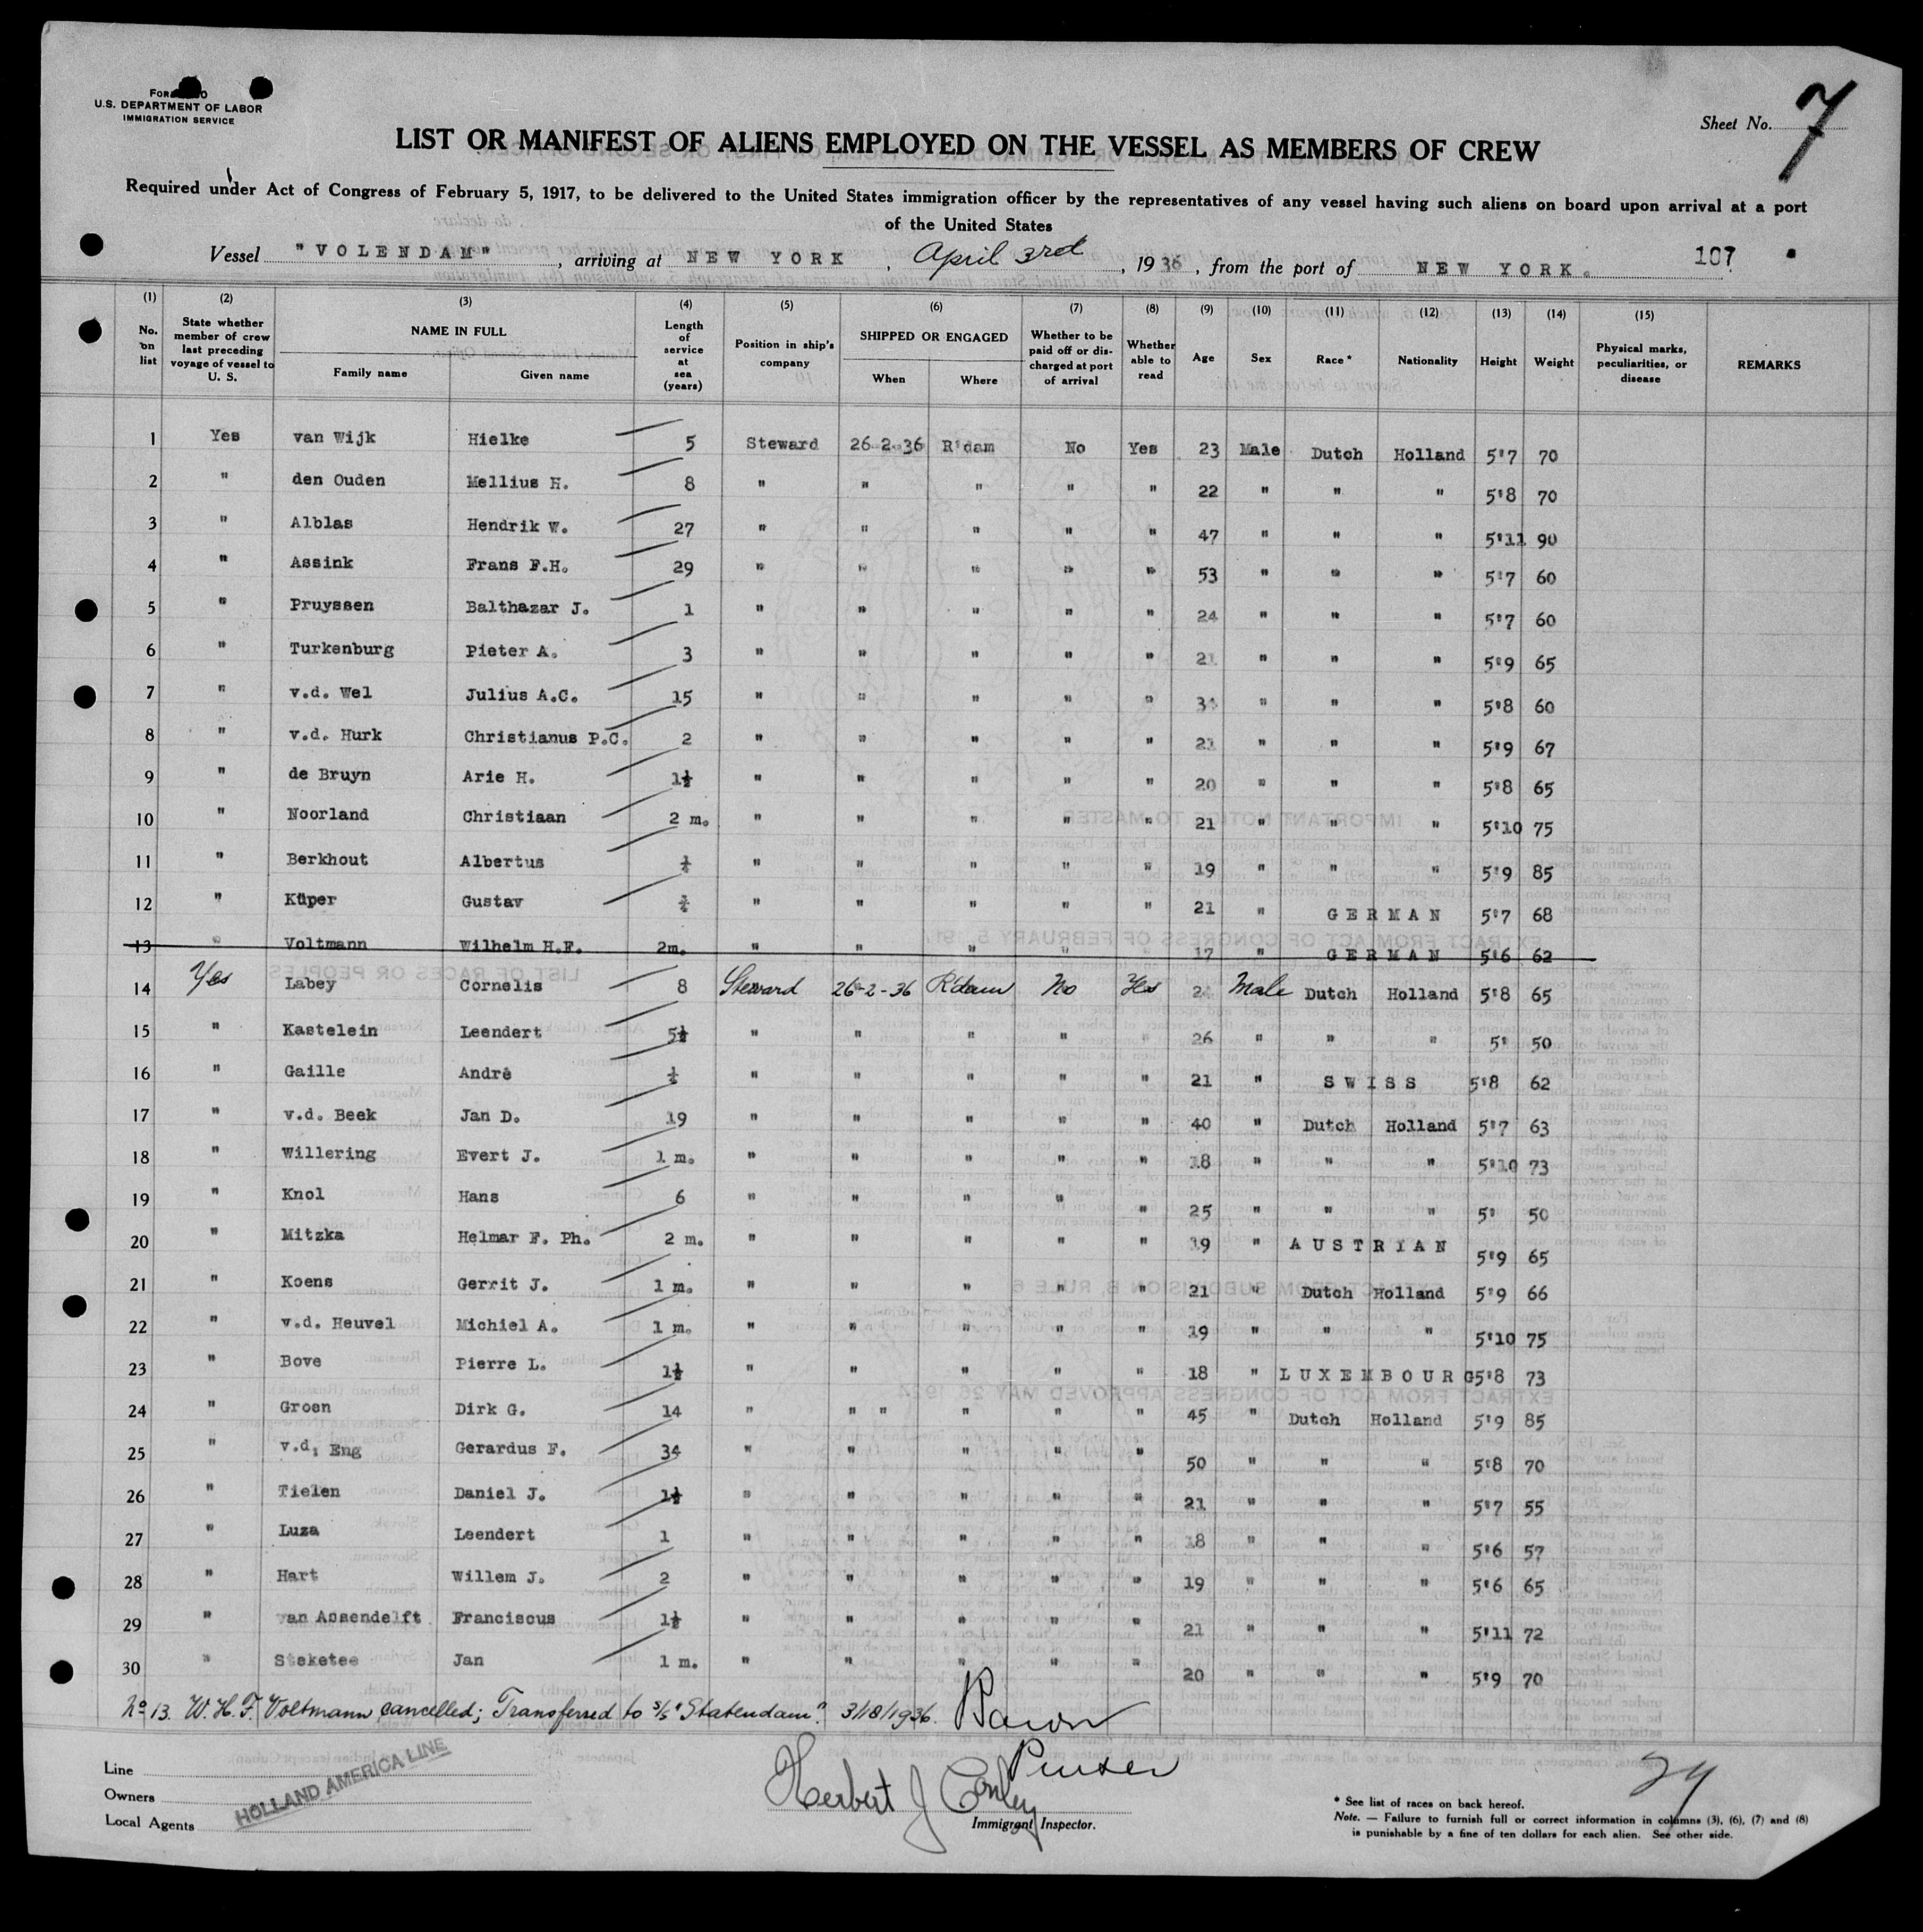 U.S. DEPARTMENT OF LABOR
IMMIGRATION SERVICE
Sheet No. 7
LIST OR MANIFEST OF ALIENS EMPLOYED ON THE VESSEL AS MEMBERS OF CREW
Required under Act of Congress of February 5, 1917, to be delivered to the United States immigration officer by the representatives of any vessel having such aliens on board upon arrival at a port
of the United States
Vessel "VOLENDAM", arriving at NEW YORK, April 3rd, 1936, from the port of NEW YORK. 107
(1) (2) (3) (4) (5) (6) (7) (8) (9) (10) (11) (12) (13) (14) (15)
No. on list State whether member of crew last preceding voyage of vessel to U. S. NAME IN FULL Family name Given name Length of service at sea (years) Position in ship's company SHIPPED OR ENGAGED When Where Whether to be paid off or discharged at port of arrival Whether able to read Age Sex Race * Nationality Height Weight Physical marks, peculiarities, or disease REMARKS
1 Yes van Wijk Hielke 5 Steward 26-2-36 R'dam No Yes 23 Male Dutch Holland 5'7 70
2 " den Ouden Mellius H. 8 " " " " " 22 " " " 5'8 70
3 " Alblas Hendrik W. 27 " " " " " 47 " " " 5'11 90
4 " Assink Frans F.H. 29 " " " " " 53 " " " 5'7 60
5 " Pruyssen Balthazar J. 1 " " " " " 24 " " " 5'7 60
6 " Turkenburg Pieter A. 3 " " " " " 21 " " " 5'9 65
7 " v.d. Wel Julius A.C. 15 " " " " " 34 " " " 5'8 60
8 " v.d. Hurk Christianus P.C. 2 " " " " " 21 " " " 5'9 67
9 " de Bruyn Arie H. 1½ " " " " " 20 " " " 5'8 65
10 " Noorland Christiaan 2 m. " " " " " 21 " " " 5'10 75
11 " Berkhout Albertus " " " " " 19 " " " 5'9 85
12 " Küper Gustav " " " " " 21 " GERMAN 5'7 68
13 " Voltmann Wilhelm H.F. 2m. " " " " " 17 " GERMAN 5'6 62
14 Yes Labey Cornelis 8 Steward 26-2-36 R'dam No Yes Male Dutch Holland 5'8 65
15 " Kastelein Leendert 5½ " " " " " 26 " " " 5' 50
16 " Gaille André " " " " " 21 " SWISS 5'8 62
17 " v.d. Beek Jan D. 19 " " " " " 40 " Dutch Holland 5'7 63
18 " Willering Evert J. 1 m. " " " " " 18 " " " 5'10 73
19 " Knol Hans 6 " " " " " 25 " " " 5' 50
20 " Mitzka Helmar F. Ph. 2 m. " " " " " 19 " AUSTRIAN 5'9 65
21 " Koens Gerrit J. 1 m. " " " " " 21 " Dutch Holland 5'9 66
22 " v.d. Heuvel Michiel A. 1 m. " " " " " 19 " " " 5'10 75
23 " Bove Pierre L. 1½ " " " " " 18 " LUXEMBOURG 5'8 73
24 " Groen Dirk G. 14 " " " " " " 45 " Dutch Holland 5'9 85
25 " v.d. Eng Gerardus F. 34 " " " " " 50 " " " 5'8 70
26 " Tielen Daniel J. 1½ " " " " " 21 " " " 5'7 55
27 " Luza Leendert 1 " " " " " 18 " " " 5'6 57
28 " Hart Willem J. 2 " " " " " 19 " " " 5'6 65
29 " van Assendelft Franciscus 1½ " " " " " 21 " " " 5'11 72
30 " Steketee Jan 1 m. " " " " " 20 " " " 5'9 70
No 13. W. H. F. Voltmann cancelled; Transferred to s/s "Statendam". 3/18/1936.
Purser
Line
Owners
Local Agents
HOLLAND AMERICA LINE
Herbert J Conley
Immigrant Inspector.
* See list of races on back hereof.
Note. — Failure to furnish full or correct information in columns (3), (6), (7) and (8)
is punishable by a fine of ten dollars for each alien. See other side.